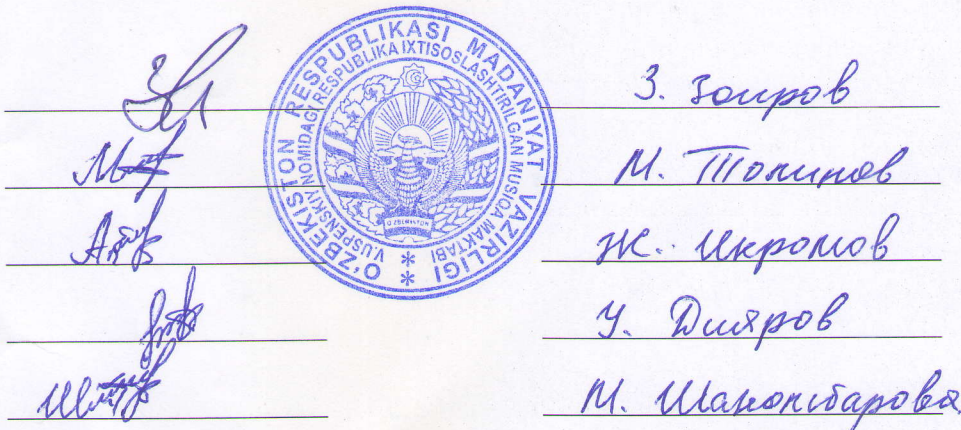 O'ZBEKISTON RESPUBLIKASI MADANIYAT VAZIRLIGI
V.USPENSKIY NOMIDAGI RESPUBLIKA IXTISOSLASHTIRILGAN MUSIQA MAKTABI
O'ZBEKISTON
З. Зоиров
М. Толипов
Ж. Икромов
У. Дияров
М.